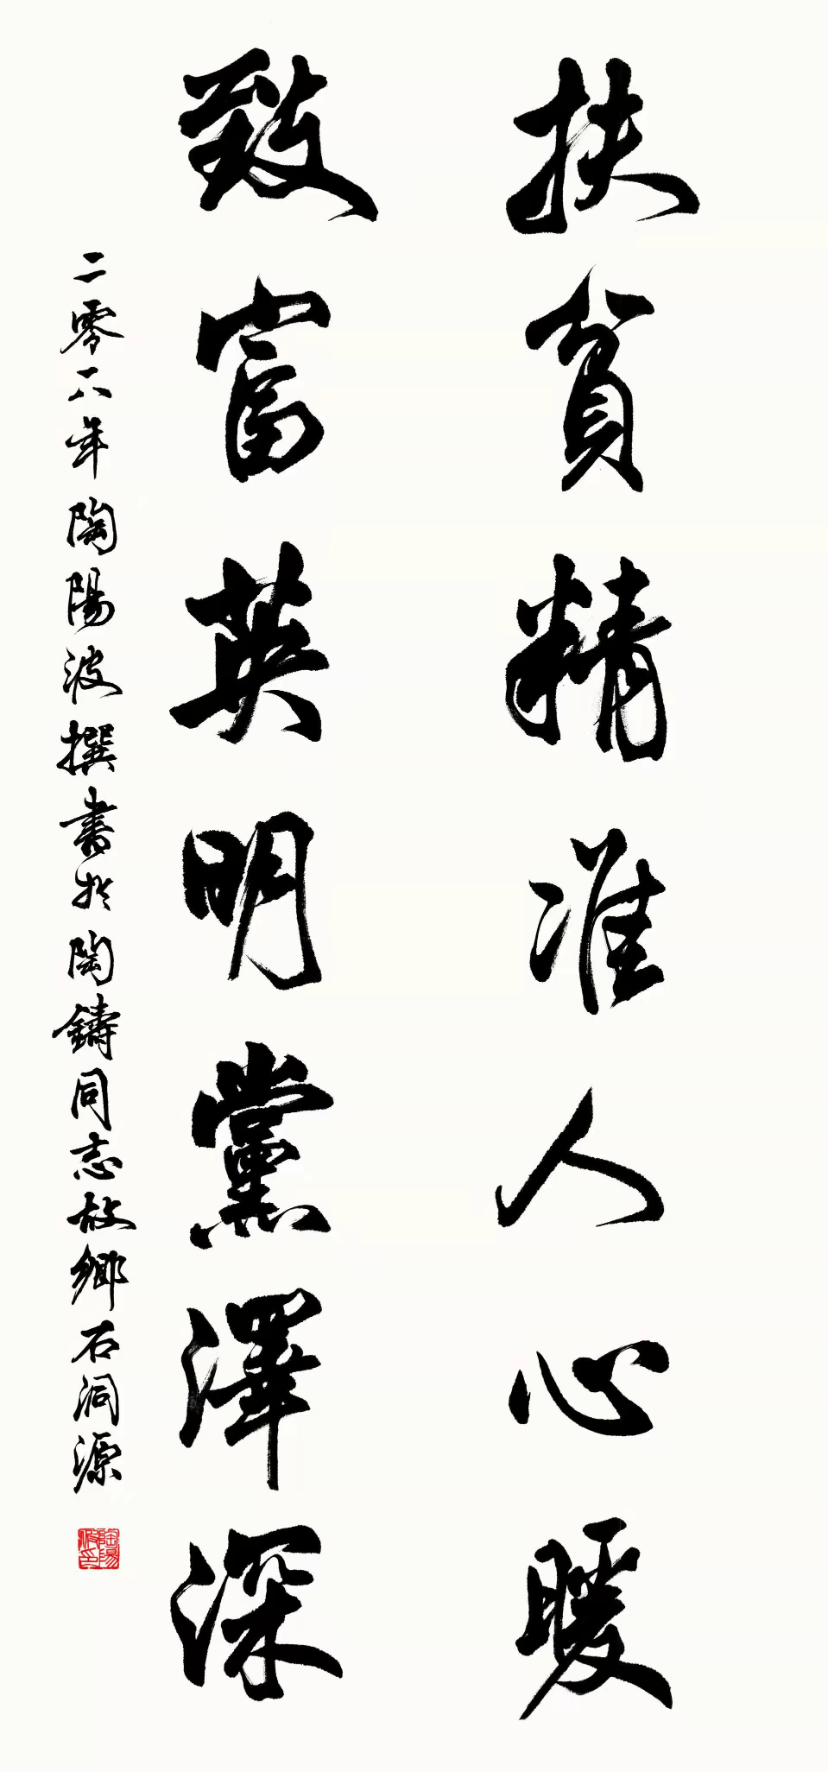 扶貧精准人心暖
致富英明黨澤深
二零一八年陶陽波撰書於陶鑄同志故鄉石洞源
陶陽波印